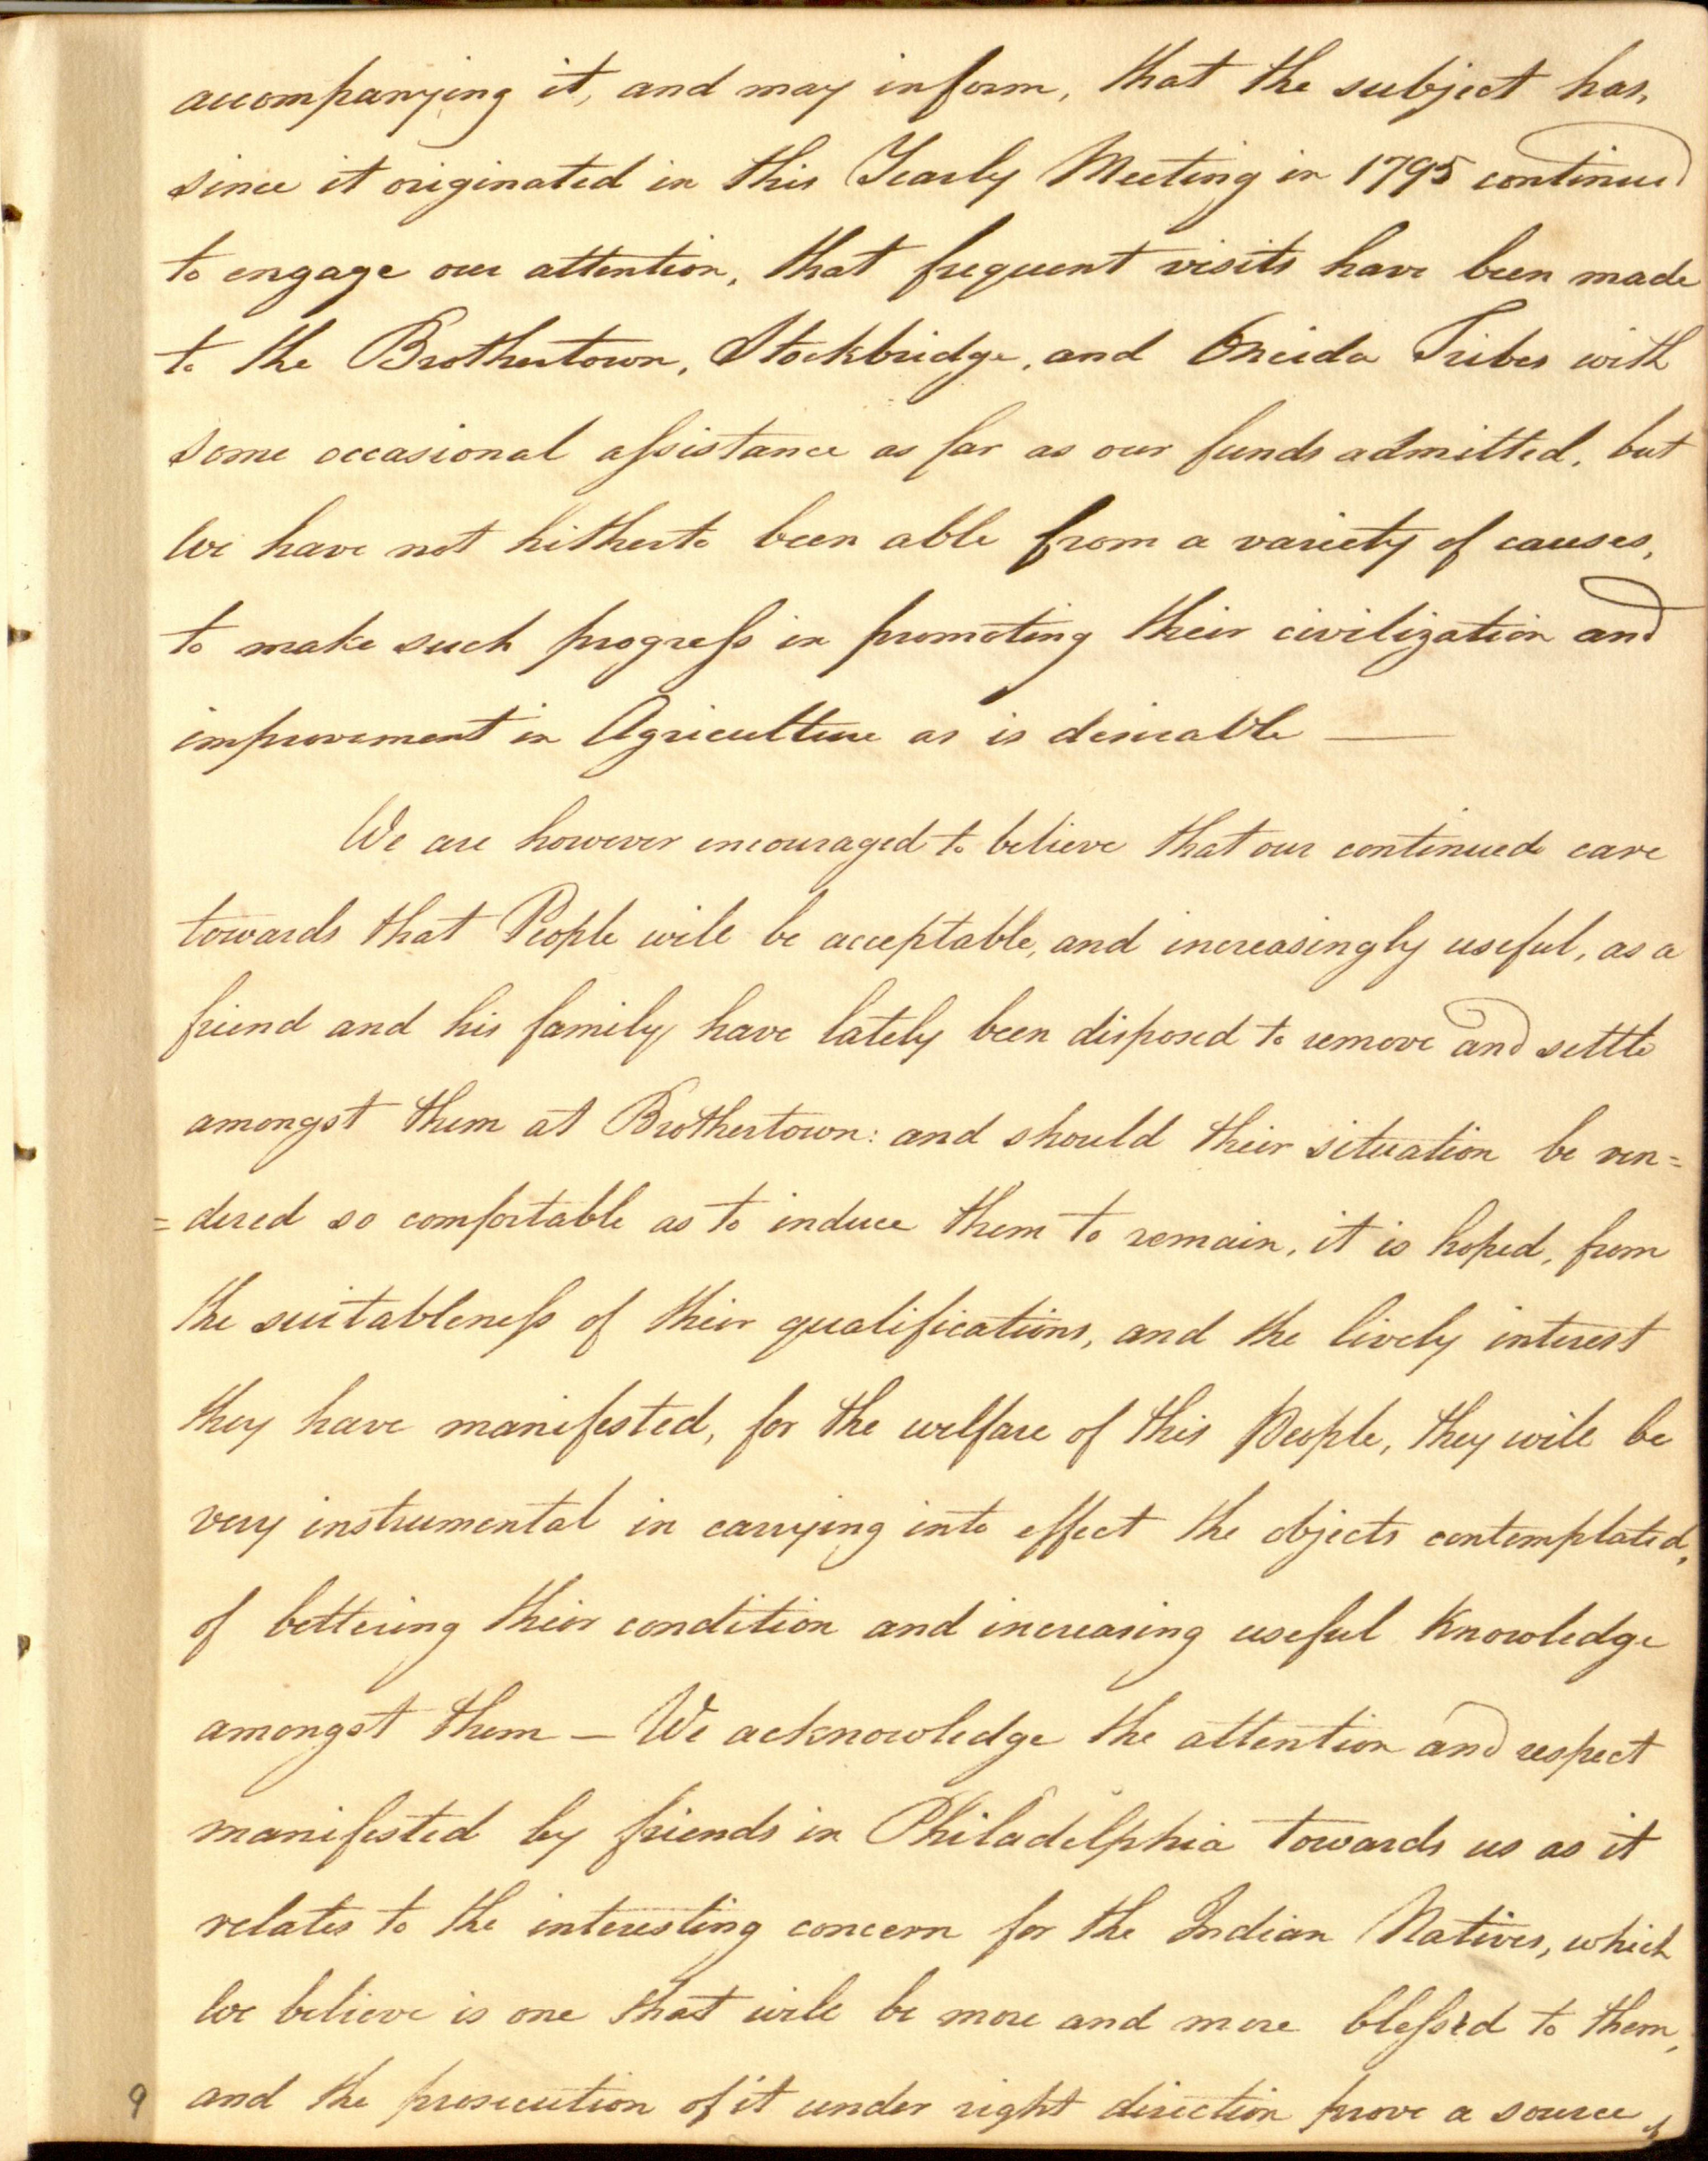 accompanying it, and may inform, that the subject has,
since it originated in this Yearly Meeting in 1795 continued
to engage our attention, that frequent visits have been made
to the Brothertown, Stockbridge, and Oneida Tribes with
some occasional assistance as far as our funds admitted, but
we have not hitherto been able from a variety of causes,
to make such progress in promoting their civilization and
improvement in Agriculture as is desireable —
We are however encouraged to believe that our continued care
towards that People will be acceptable, and increasingly useful, as a
friend and his family have lately been disposed to remove and settle
amongst them at Brothertown: and should their situation be ren=
=dered so comfortable as to induce them to remain, it is hoped, from
the suitableness of their qualifications, and the lively interest
they have manifested, for the welfare of this People, they will be
very instrumental in carrying into effect the objects contemplated,
of bettering their condition and increasing useful Knowledge
amongst them — We acknowledge the attention and respect
manifested by friends in Philadelphia towards us as it
relates to the interesting concern for the Indian Natives, which
we believe is one that will be more and more blessed to them,
and the prosecution of it under right direction prove a source of
9